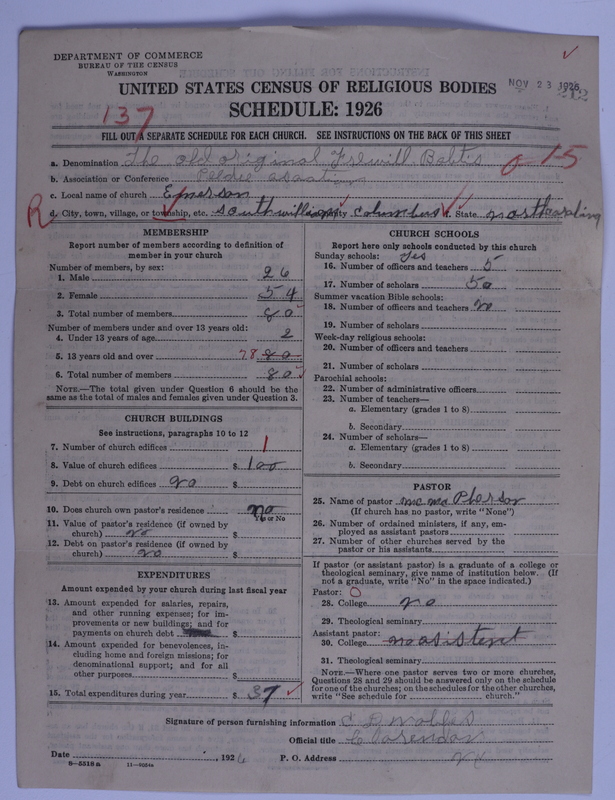 DEPARTMENT OF COMMERCE
BUREAU OF THE CENSUS
WASHINGTON
UNITED STATES CENSUS OF RELIGIOUS BODIES
NOV 23 1926
212
SCHEDULE: 1926
137
FILL OUT A SEPARATE SCHEDULE FOR EACH CHURCH. SEE INSTRUCTIONS ON THE BACK OF THIS SHEET
a. Denomination The old original Frewill Babtis 0-15
b. Association or Conference
c. Local name of church Emerson
R d. City, town, village, or township, etc. County columbus State
MEMBERSHIP
Report number of members according to definition of
member in your church
Number of members by sex:
1. Male 26
2. Female 54
3. Total number of members 80
Number of members under and over 13 years old:
4. Under 13 years of age 2
5. 13 years old and over 78 80
6. Total number of members 80
NOTE.—The total given under Question 6 should be the
same as the total of males and females given under Question 3.
CHURCH BUILDINGS
See instructions, paragraphs 10 to 12
7. Number of church edifices 1
8. Value of church edifices $ 100
9. Debt on church edifices no $
10. Does church own pastor's residence no
Yes or No
11. Value of pastor's residence (if owned by
church) no $
12. Debt on pastor's residence (if owned by
church) no $
EXPENDITURES
Amount expended by your church during last fiscal year
13. Amount expended for salaries, repairs,
and other running expenses; for im-
provements or new buildings; and for
payments on church debt $
14. Amount expended for benevolences, in-
cluding home and foreign missions; for
denominational support; and for all
other purposes $
15. Total expenditures during year $ 37
CHURCH SCHOOLS
Report here only schools conducted by this church
Sunday schools: yes
16. Number of officers and teachers 5
17. Number of scholars 50
Summer vacation Bible schools:
18. Number of officers and teachers no
19. Number of scholars
Week-day religious schools:
20. Number of officers and teachers
21. Number of scholars
Parochial schools:
22. Number of administrative officers
23. Number of teachers—
a. Elementary (grades 1 to 8)
b. Secondary
24. Number of scholars—
a. Elementary (grades 1 to 8)
b. Secondary
PASTOR
25. Name of pastor Pherson
(If church has no pastor, write "None")
26. Number of ordained ministers, if any, em-
ployed as assistant pastors
27. Number of other churches served by the
pastor or his assistants
If pastor (or assistant pastor) is a graduate of a college or
theological seminary, give name of institution below. (If
not a graduate, write "No" in the space indicated.)
Pastor: 0
28. College no
29. Theological seminary
Assistant pastor:
30. College no asistent
31. Theological seminary
NOTE.—Where one pastor serves two or more churches,
Questions 28 and 29 should be answered only on the schedule
for one of the churches; on the schedules for the other churches,
write "See schedule for church."
Signature of person furnishing information
Official title Clarendon
Date , 1926 P. O. Address
8-5518a 11-9034a